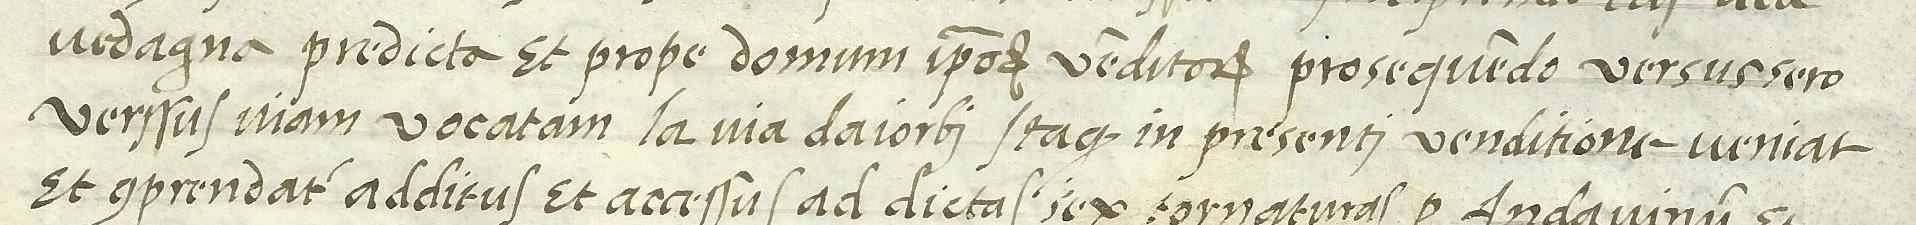 uedagna predicta Et prope domum ip̄oꝝ vēditoꝝ prosequēdo versus sero
verssus uiam vocatam la uia da iorbi Itaqꝫ in presenti venditione ueniat
Et ꝯprendat' additus Et accessus ad dictas sex tornaturas p